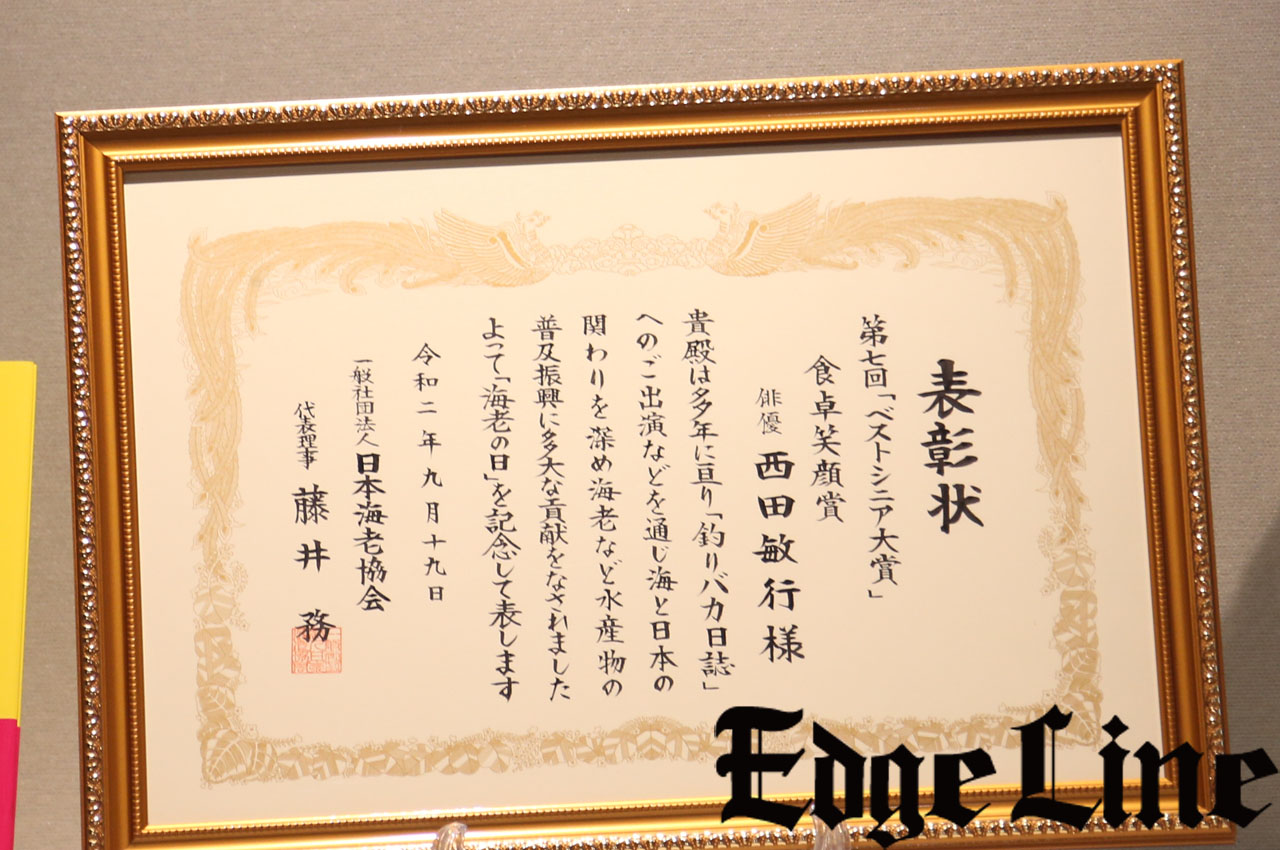 表彰状
第七回「ベストシニア大賞」
食卓笑顔賞
俳優 西田敏行様
貴殿は多年に亘り「釣りバカ日誌」
へのご出演などを通じ海と日本の
関わりを深め海老など水産物の
普及振興に多大な貢献をなされました
よって「海老の日」を記念して表します
令和二年九月十九日
一般社団法人 日本海老協会
代表理事 藤井 務
Edge Line